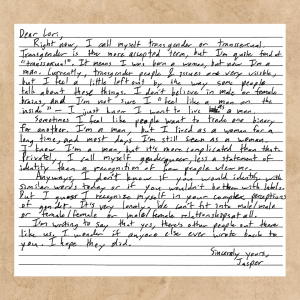 Dear Lori,
Right now, I call myself transgender or transsexual.
Transgender is the more accepted term, but I'm quite fond of
"transsexual". It means I was born a woman, but now I'm a
man. Currently, transgender people & issues are very visible,
but I feel a little left out by the way some people
talk about these things. I don't believe in male or female
brains, and I'm not sure I "feel like a man on the
inside" — I just know I want to live as a man.
Sometimes I feel like people want to trade one binary
for another. I'm a man, but I lived as a woman for a
long time, and most days I'm still seen as a woman.
I know I'm a man, but it's more complicated than that.
Privately, I call myself genderqueer, less a statement of
identity than a recognition of how people view me.
Anyways, I don't know if you would identify with
similar words today or if you wouldn't bother with labels.
But I guess I recognize myself in your complex perceptions
of gender. It's very lonely. We can't fit into male/male
or female/female or male/female relationships at all.
I'm writing to say that yes, there's other people out there
like us. I wonder if anyone else ever wrote back to
you. I hope they did.
Sincerely yours,
Jasper